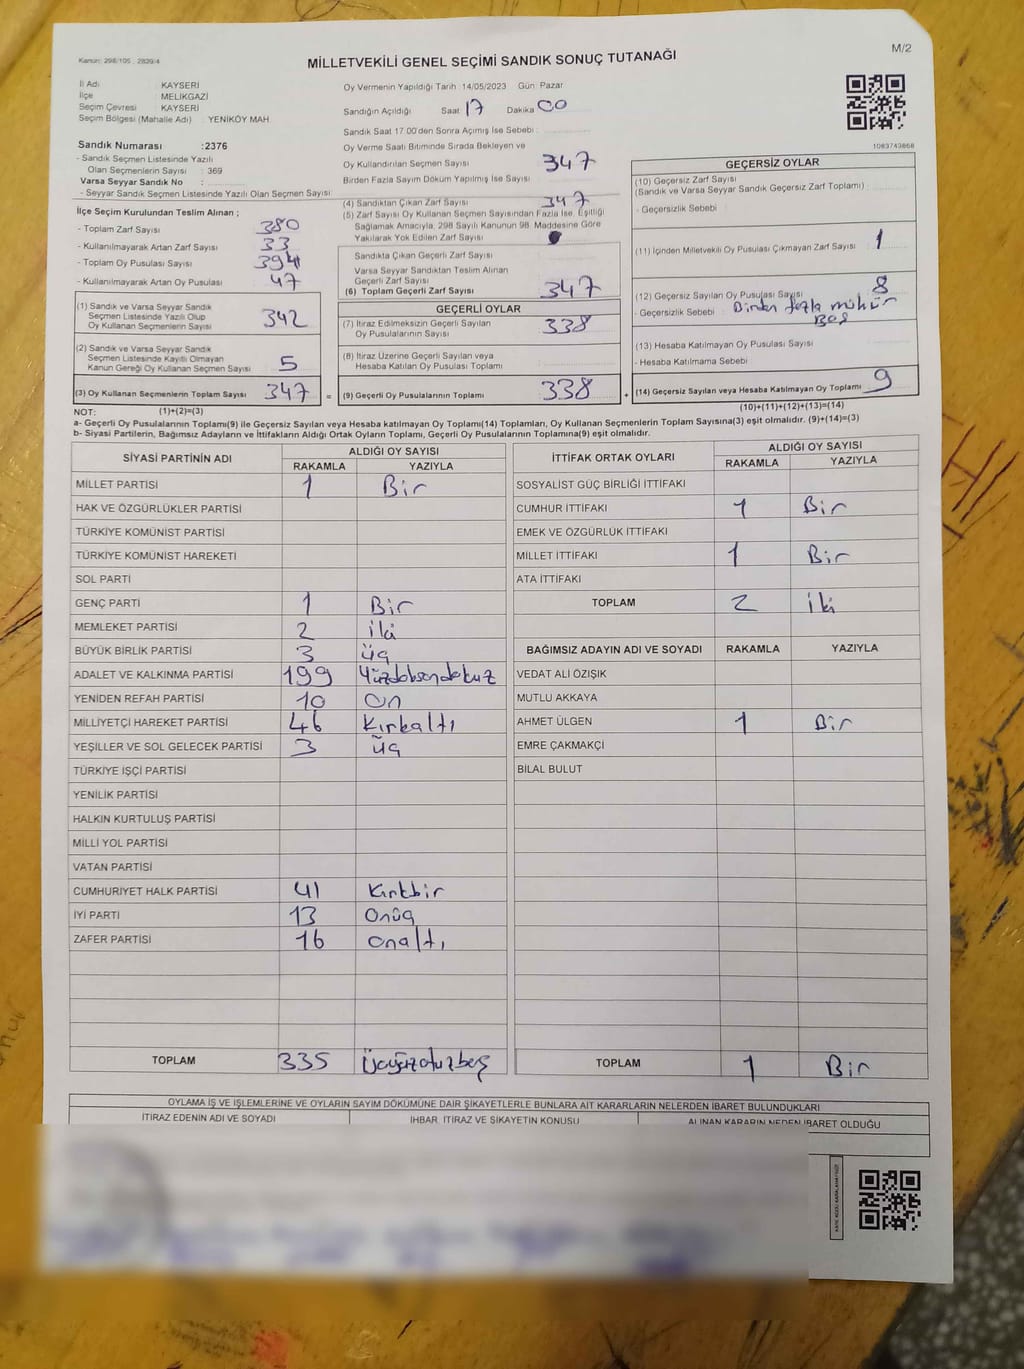 Kanun: 298/105 , 2839/4
M/2
MİLLETVEKİLİ GENEL SEÇİMİ SANDIK SONUÇ TUTANAĞI
İl Adı : KAYSERİ
İlçe : MELİKGAZİ
Seçim Çevresi : KAYSERİ
Seçim Bölgesi (Mahalle Adı) : YENİKÖY MAH.
Sandık Numarası :2376
- Sandık Seçmen Listesinde Yazılı
Olan Seçmenlerin Sayısı : 369
Varsa Seyyar Sandık No :
- Seyyar Sandık Seçmen Listesinde Yazılı Olan Seçmen Sayısı
Oy Vermenin Yapıldığı Tarih :14/05/2023 Gün: Pazar
Sandığın Açıldığı Saat 17 Dakika 00
Sandık Saat 17.00'den Sonra Açılmış İse Sebebi :
Oy Verme Saati Bitiminde Sırada Bekleyen ve
Oy Kullandırılan Seçmen Sayısı 347
Birden Fazla Sayım Döküm Yapılmış İse Sayısı
1083743868
İlçe Seçim Kurulundan Teslim Alınan ;
- Toplam Zarf Sayısı 380
- Kullanılmayarak Artan Zarf Sayısı 33
- Toplam Oy Pusulası Sayısı 394
- Kullanılmayarak Artan Oy Pusulası 47
(1) Sandık ve Varsa Seyyar Sandık
Seçmen Listesinde Yazılı Olup
Oy Kullanan Seçmenlerin Sayısı 342
(2) Sandık ve Varsa Seyyar Sandık
Seçmen Listesinde Kayıtlı Olmayan
Kanun Gereği Oy Kullanan Seçmen Sayısı 5
(3) Oy Kullanan Seçmenlerin Toplam Sayısı 347 =
(4) Sandıktan Çıkan Zarf Sayısı 347
(5) Zarf Sayısı Oy Kullanan Seçmen Sayısından Fazla İse, Eşitliği
Sağlamak Amacıyla, 298 Sayılı Kanunun 98. Maddesine Göre
Yakılarak Yok Edilen Zarf Sayısı
Sandıkta Çıkan Geçerli Zarf Sayısı
Varsa Seyyar Sandıktan Teslim Alınan
Geçerli Zarf Sayısı
(6) Toplam Geçerli Zarf Sayısı 347
GEÇERLİ OYLAR
(7) İtiraz Edilmeksizin Geçerli Sayılan
Oy Pusulalarının Sayısı 338
(8) İtiraz Üzerine Geçerli Sayılan veya
Hesaba Katılan Oy Pusulası Toplamı
(9) Geçerli Oy Pusulalarının Toplamı 338 +
GEÇERSİZ OYLAR
(10) Geçersiz Zarf Sayısı
(Sandık ve Varsa Seyyar Sandık Geçersiz Zarf Toplamı) :
- Geçersizlik Sebebi :
(11) İçinden Milletvekili Oy Pusulası Çıkmayan Zarf Sayısı : 1
(12) Geçersiz Sayılan Oy Pusulası Sayısı 8
- Geçersizlik Sebebi : Birden fazla mühür
Boş
(13) Hesaba Katılmayan Oy Pusulası Sayısı
- Hesaba Katılmama Sebebi
(14) Geçersiz Sayılan veya Hesaba Katılmayan Oy Toplamı 9
NOT: (1)+(2)=(3) (10)+(11)+(12)+(13)=(14)
a- Geçerli Oy Pusulalarının Toplamı(9) ile Geçersiz Sayılan veya Hesaba Katılmayan Oy Toplamı(14) Toplamları, Oy Kullanan Seçmenlerin Toplam Sayısına(3) eşit olmalıdır. (9)+(14)=(3)
b- Siyasi Partilerin, Bağımsız Adayların ve İttifakların Aldığı Ortak Oyların Toplamı, Geçerli Oy Pusulalarının Toplamına(9) eşit olmalıdır.
SİYASİ PARTİNİN ADI ALDIĞI OY SAYISI
RAKAMLA YAZIYLA
MİLLET PARTİSİ 1 Bir
HAK VE ÖZGÜRLÜKLER PARTİSİ
TÜRKİYE KOMÜNİST PARTİSİ
TÜRKİYE KOMÜNİST HAREKETİ
SOL PARTİ
GENÇ PARTİ 1 Bir
MEMLEKET PARTİSİ 2 iki
BÜYÜK BİRLİK PARTİSİ 3 üç
ADALET VE KALKINMA PARTİSİ 199 Yüzdoksandokuz
YENİDEN REFAH PARTİSİ 10 On
MİLLİYETÇİ HAREKET PARTİSİ 46 Kırkaltı
YEŞİLLER VE SOL GELECEK PARTİSİ 3 üç
TÜRKİYE İŞÇİ PARTİSİ
YENİLİK PARTİSİ
HALKIN KURTULUŞ PARTİSİ
MİLLİ YOL PARTİSİ
VATAN PARTİSİ
CUMHURİYET HALK PARTİSİ 41 Kırkbir
İYİ PARTİ 13 Onüç
ZAFER PARTİSİ 16 onaltı
TOPLAM 335 Üçyüzotuzbeş
İTTİFAK ORTAK OYLARI ALDIĞI OY SAYISI
RAKAMLA YAZIYLA
SOSYALİST GÜÇ BİRLİĞİ İTTİFAKI
CUMHUR İTTİFAKI 1 Bir
EMEK VE ÖZGÜRLÜK İTTİFAKI
MİLLET İTTİFAKI 1 Bir
ATA İTTİFAKI
TOPLAM 2 iki
BAĞIMSIZ ADAYIN ADI VE SOYADI RAKAMLA YAZIYLA
VEDAT ALİ ÖZIŞIK
MUTLU AKKAYA
AHMET ÜLGEN 1 Bir
EMRE ÇAKMAKÇİ
BİLAL BULUT
TOPLAM 1 Bir
OYLAMA İŞ VE İŞLEMLERİNE VE OYLARIN SAYIM DÖKÜMÜNE DAİR ŞİKAYETLERLE BUNLARA AİT KARARLARIN NELERDEN İBARET BULUNDUKLARI
İTİRAZ EDENİN ADI VE SOYADI İHBAR, İTİRAZ VE ŞİKAYETİN KONUSU ALINAN KARARIN NEDEN İBARET OLDUĞU